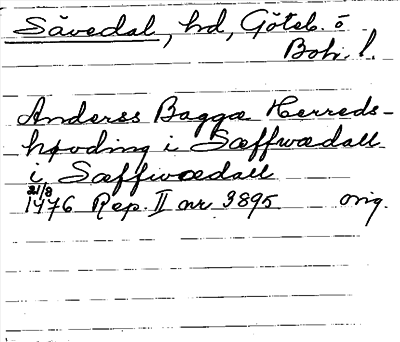 Sävedal, hd, Göteb. o
Boh. l.
Anderss Bagga Herreds-
høvding i Sæffwædall
i Sæffwædall
21/8
1476 Rep. II nr 3895 orig.